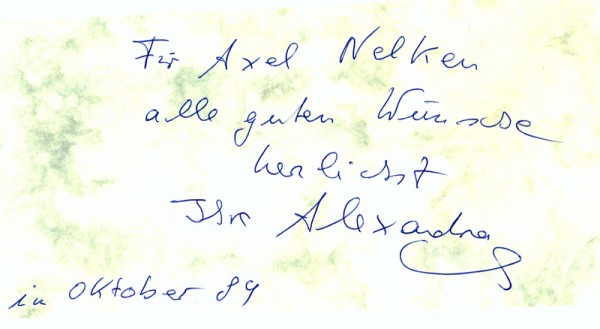 Für Axel Nelken
alle guten Wünsche
herlichst
Ihre Alexandra
in Oktober 89